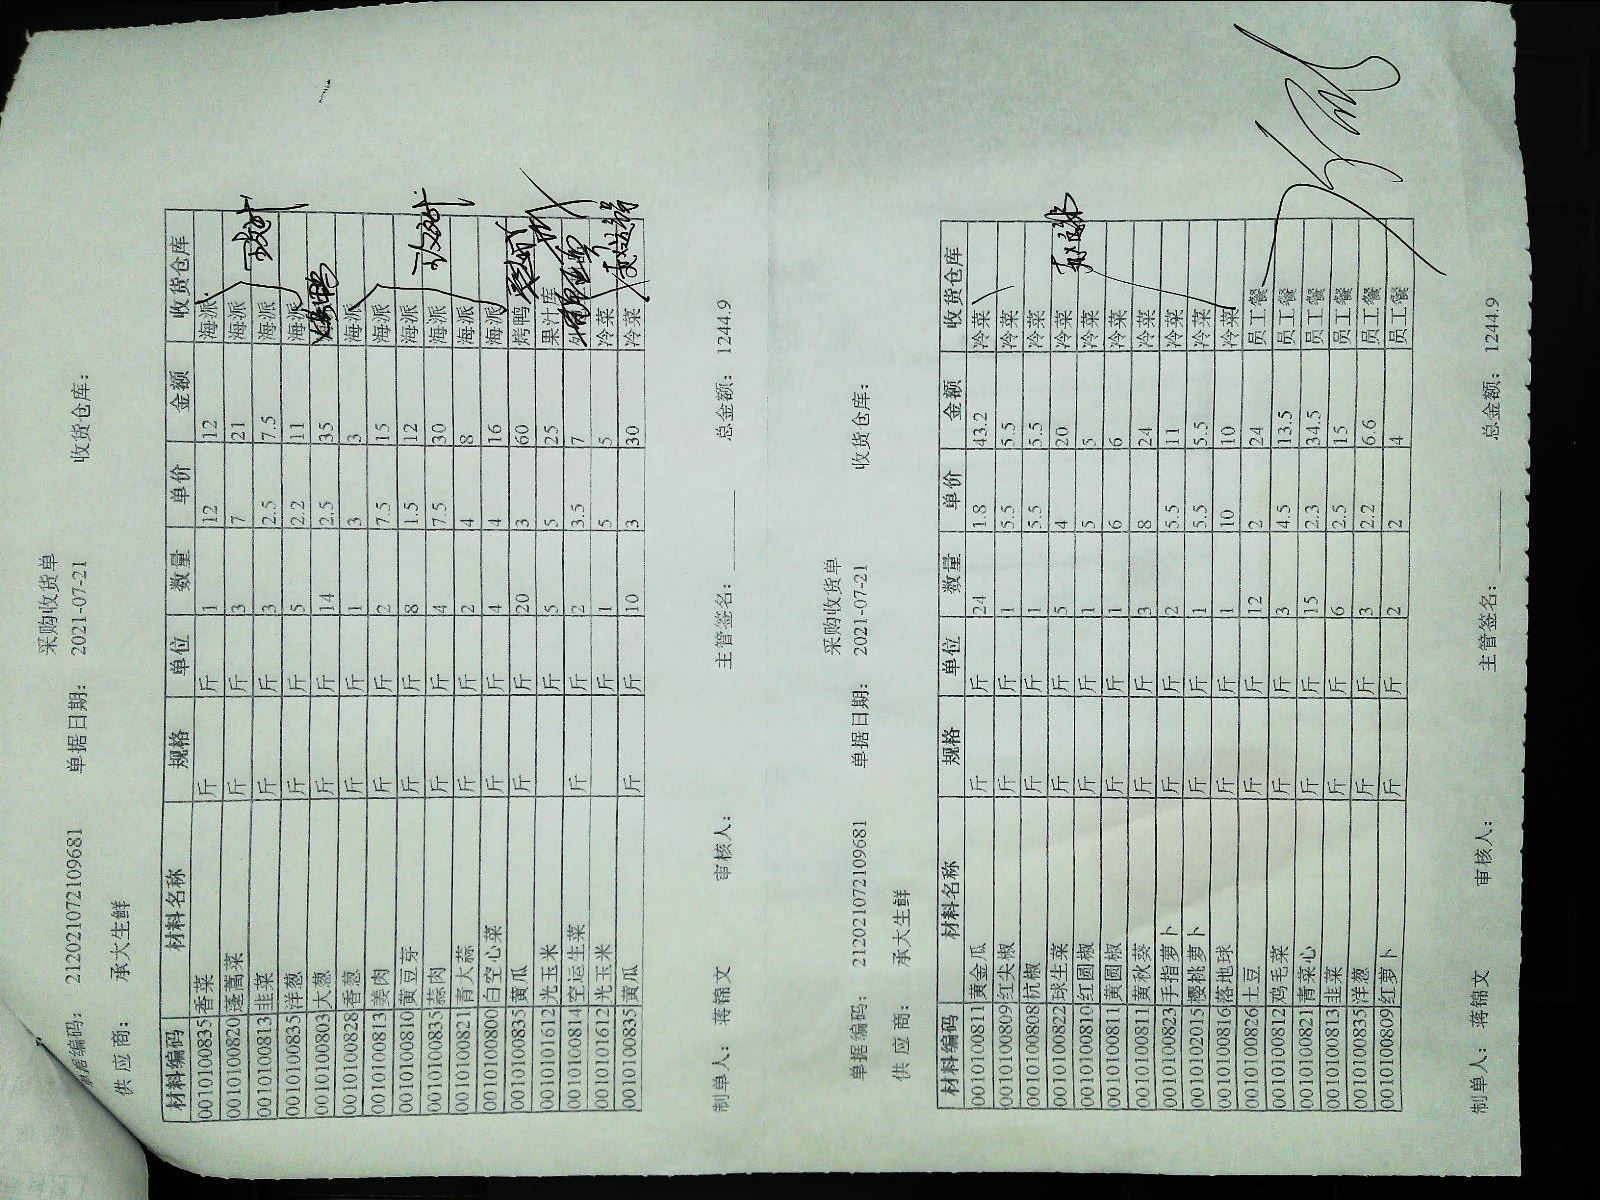 采购收货单
单据编码： 212021072109681 单据日期： 2021-07-21 收货仓库：
供 应 商： 承大生鲜
材料编码 材料名称 规格 单位 数量 单价 金额 收货仓库
0010100835 香菜 斤 斤 1 12 12 海派
0010100820 蓬蒿菜 斤 斤 3 7 21 海派
0010100813 韭菜 斤 斤 3 2.5 7.5 海派
0010100835 洋葱 斤 斤 5 2.2 11 海派
0010100803 大葱 斤 斤 14 2.5 35
0010100828 香葱 斤 斤 1 3 3 海派
0010100813 姜肉 斤 斤 2 7.5 15 海派
0010100810 黄豆芽 斤 斤 8 1.5 12 海派
0010100835 蒜肉 斤 斤 4 7.5 30 海派
0010100821 青大蒜 斤 斤 2 4 8 海派
0010100800 白空心菜 斤 斤 4 4 16 海派
0010100835 黄瓜 斤 斤 20 3 60 烤鸭
0010101612 光玉米 斤 5 5 25 果汁库
0010100814 空运生菜 斤 斤 2 3.5 7
0010101612 光玉米 斤 1 5 5 冷菜
0010100835 黄瓜 斤 斤 10 3 30 冷菜
制单人： 蒋锦文 审核人： 主管签名： 总金额： 1244.9
采购收货单
单据编码： 212021072109681 单据日期： 2021-07-21 收货仓库：
供 应 商： 承大生鲜
材料编码 材料名称 规格 单位 数量 单价 金额 收货仓库
0010100811 黄金瓜 斤 斤 24 1.8 43.2 冷菜
0010100809 红尖椒 斤 斤 1 5.5 5.5 冷菜
0010100808 杭椒 斤 斤 1 5.5 5.5 冷菜
0010100822 球生菜 斤 斤 5 4 20 冷菜
0010100810 红圆椒 斤 斤 1 5 5 冷菜
0010100811 黄圆椒 斤 斤 1 6 6 冷菜
0010100811 黄秋葵 斤 斤 3 8 24 冷菜
0010100823 手指萝卜 斤 斤 2 5.5 11 冷菜
0010102015 樱桃萝卜 斤 斤 1 5.5 5.5 冷菜
0010100816 落地球 斤 斤 1 10 10 冷菜
0010100826 土豆 斤 斤 12 2 24 员工餐
0010100812 鸡毛菜 斤 斤 3 4.5 13.5 员工餐
0010100821 青菜心 斤 斤 15 2.3 34.5 员工餐
0010100813 韭菜 斤 斤 6 2.5 15 员工餐
0010100835 洋葱 斤 斤 3 2.2 6.6 员工餐
0010100809 红萝卜 斤 斤 2 2 4 员工餐
制单人： 蒋锦文 审核人： 主管签名： 总金额： 1244.9